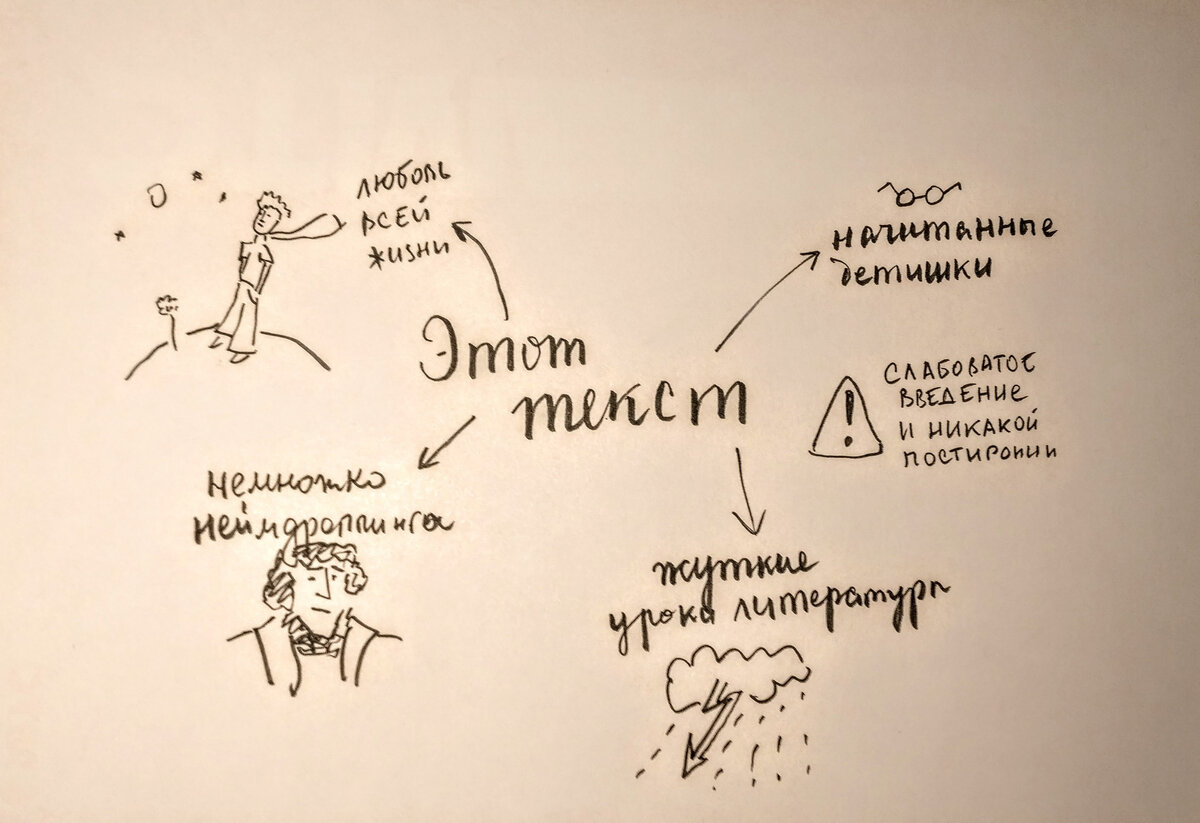 любовь
всей
жизни
начитанные
детишки
Этот
текст
СЛАБОВАТОЕ
ВВЕДЕНИЕ
И НИКАКОЙ
ПОСТИРОНИИ
немножко
неймдроппинга
жуткие
уроки литературы